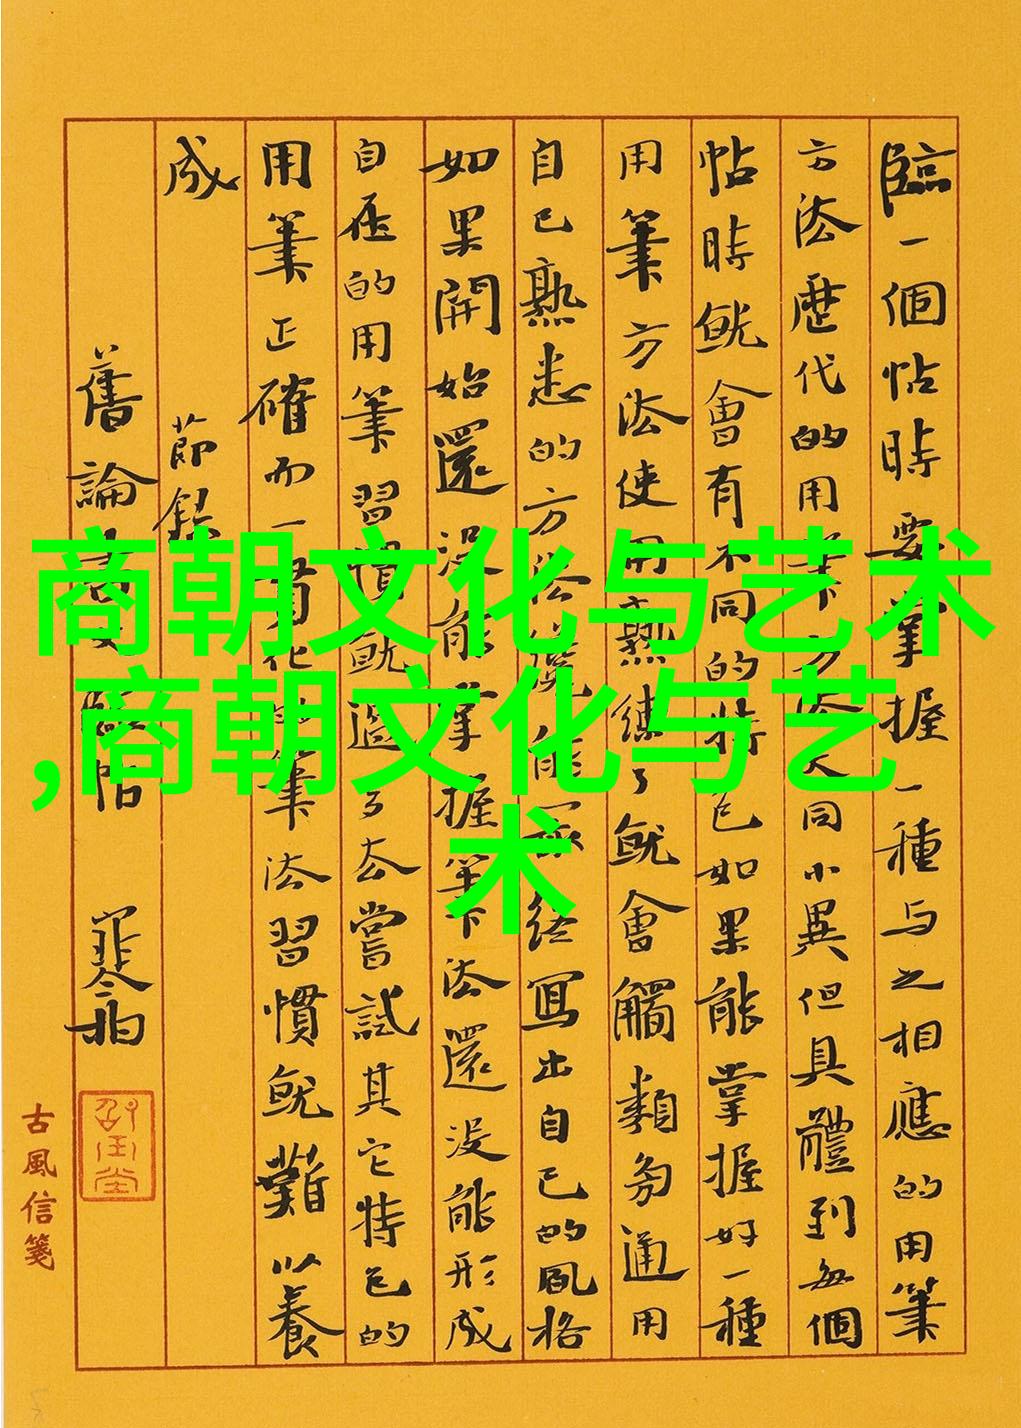 臨一個帖時要掌握一種与之相應的用筆
方法歷代的用筆方法大同小異但具體到每個
帖時就會有不同的特色如果能掌握好一種
用筆方法使用熟練了就會觸類旁通用
自己熟悉的方法就能靈活寫出自己的風格
如果開始還沒能掌握筆法還沒能形成
自在的用筆習慣就過了去嘗試其它特色的
用筆正確而一筆法習慣就難以養
成
節錄
舊論書
臨帖
古風信箋
商朝文化与艺术
,商朝文化与艺
术